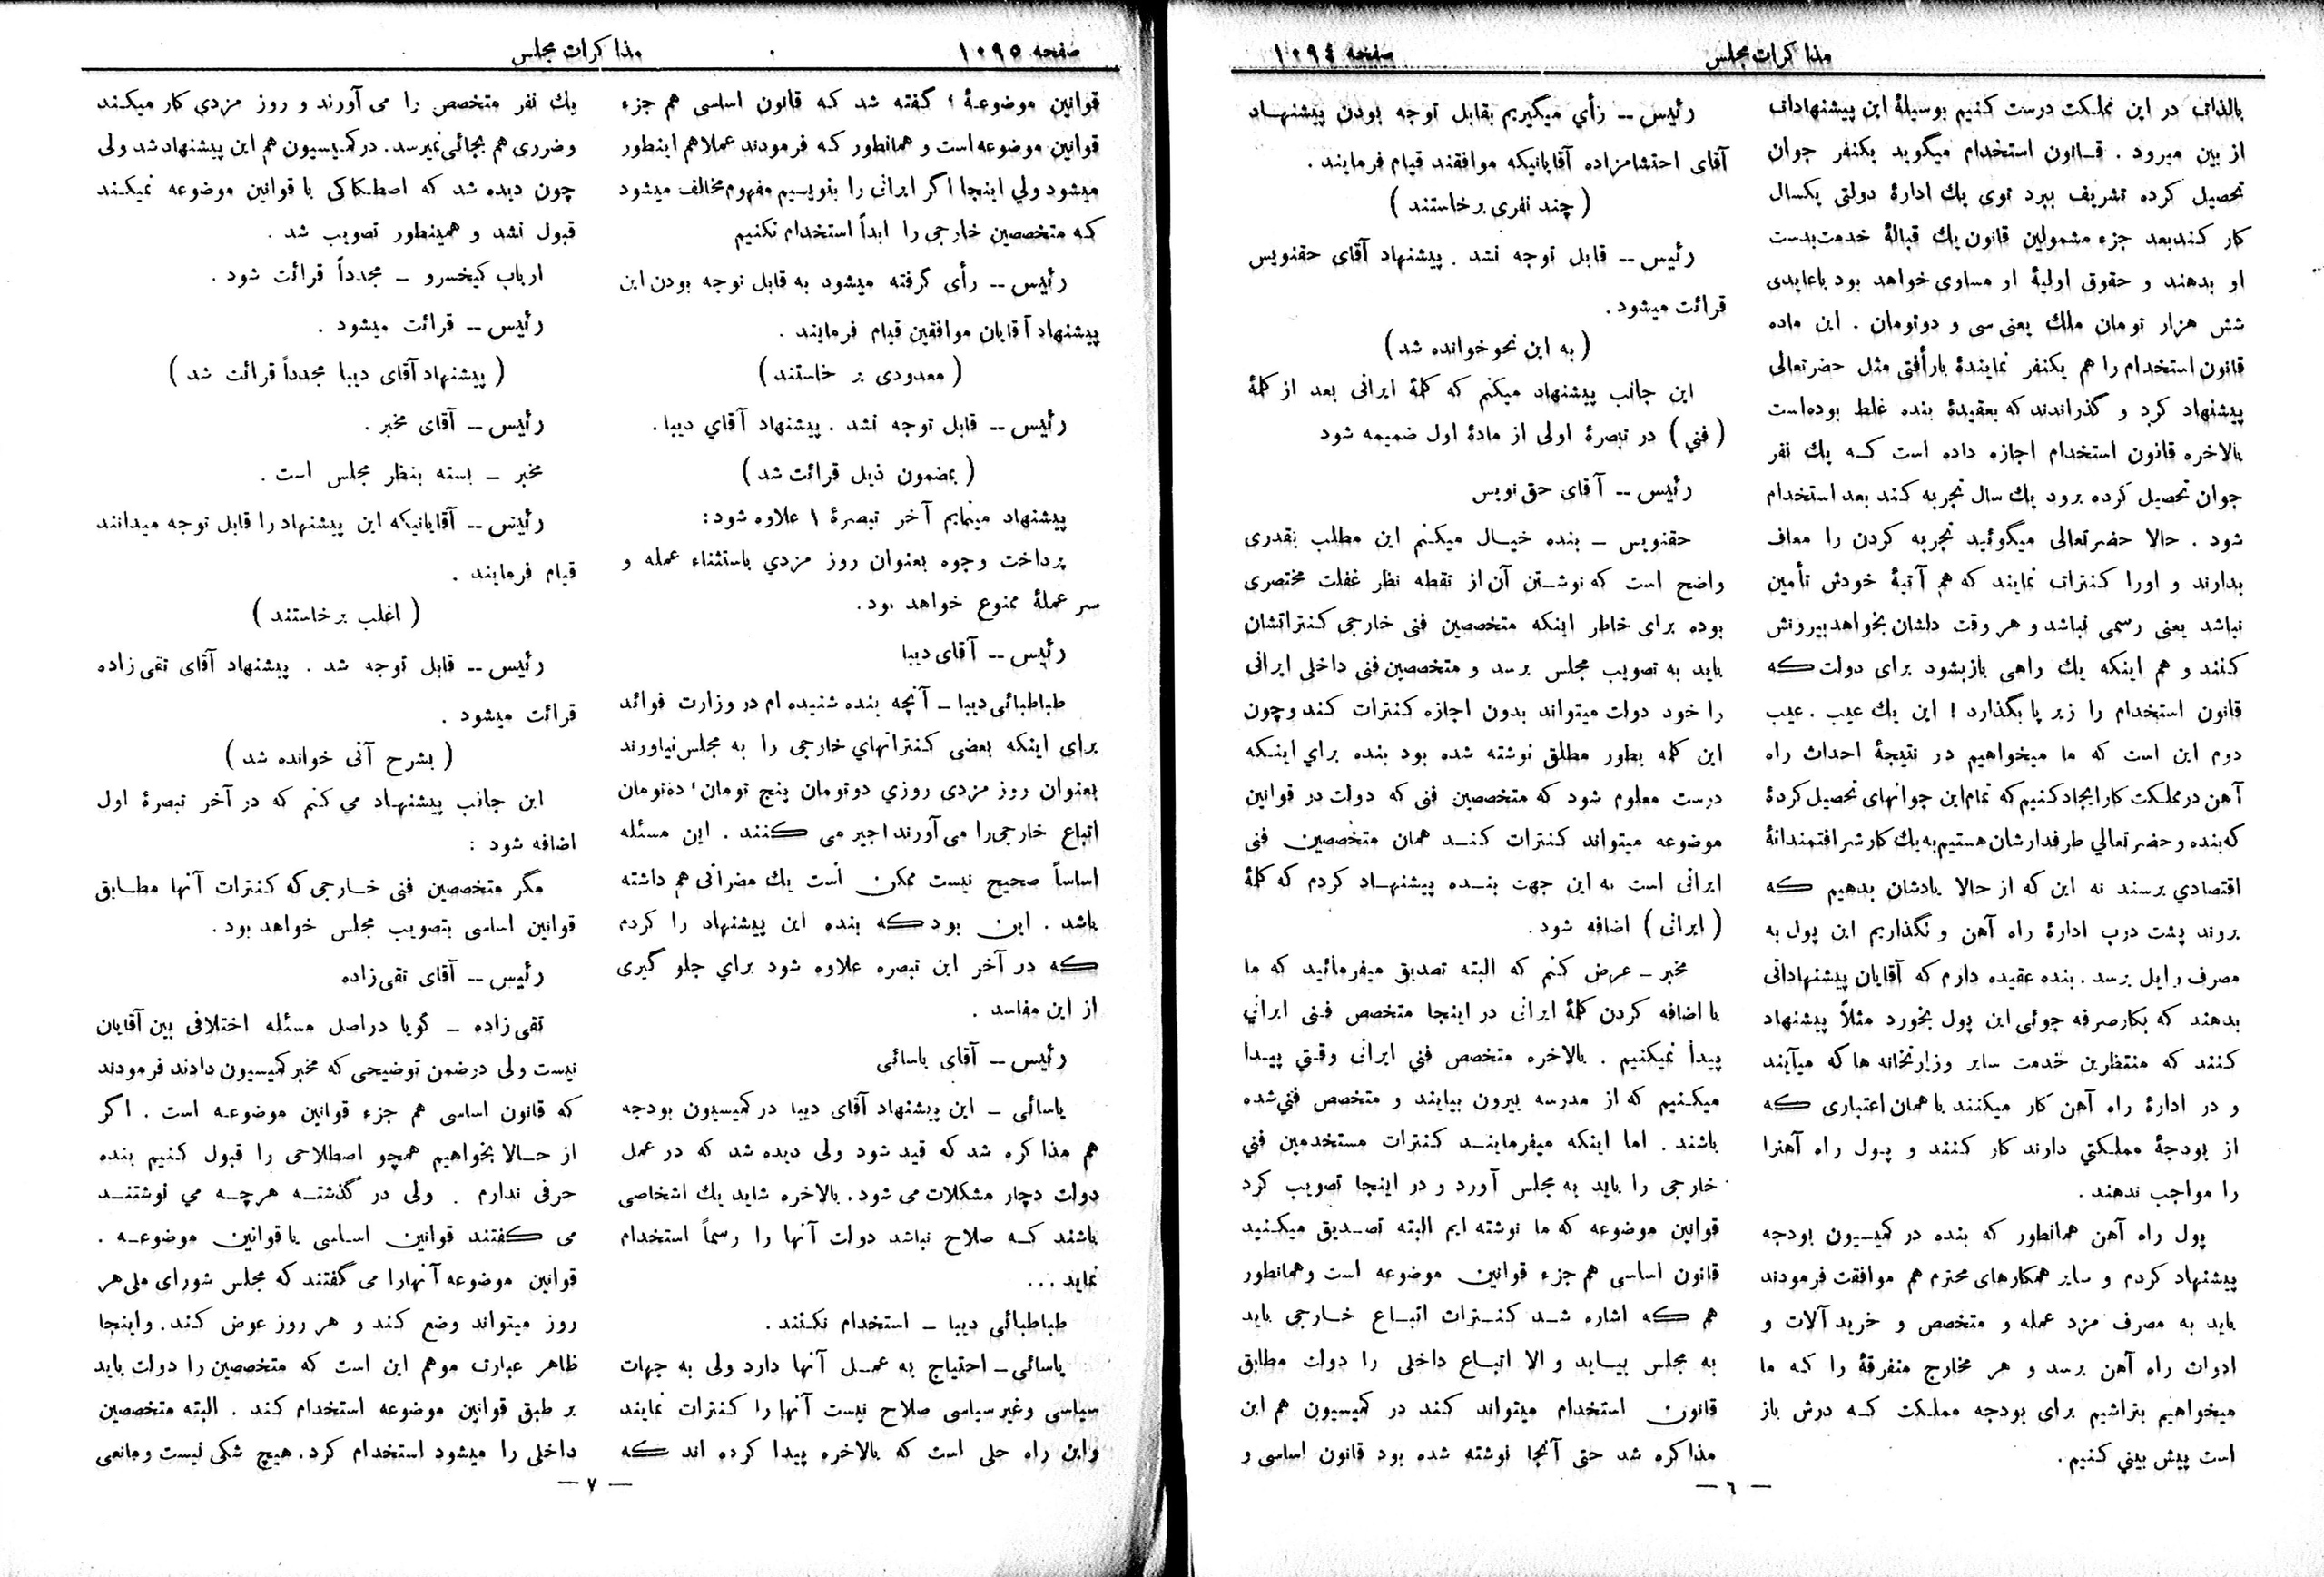 مذاکرات مجلس
صفحه ۱۰۹٤
بالذاتی در این مملکت درست کنیم بوسیلهٔ این پیشنهادات
از بین میرود . قانون استخدام میگوید یکنفر جوان
تحصیل کرده تشریف ببرد توی یك ادارهٔ دولتی یکسال
کار کند بعد جزء مشمولین قانون یك قبالهٔ خدمت بدست
او بدهند و حقوق اولیهٔ او مساوی خواهد بود باعایدی
شش هزار تومان ملك یعنی سی و دوتومان . این ماده
قانون استخدام را هم یکنفر نمایندهٔ بارأفتی مثل حضرتعالی
پیشنهاد کرد و گذراندند که بعقیدهٔ بنده غلط بوده‌است
بالاخره قانون استخدام اجازه داده است که یك نفر
جوان تحصیل کرده برود یك سال تجربه کند بعد استخدام
شود . حالا حضرتعالی میگوئید تجربه کردن را معاف
بدارند و اورا کنترات نمایند که هم آتیهٔ خودش تأمین
نباشد یعنی رسمی نباشد و هر وقت دلشان بخواهد بیرونش
کنند و هم اینکه یك راهی بازبشود برای دولت که
قانون استخدام را زیر پا بگذارد ! این یك عیب . عیب
دوم این است که ما میخواهیم در نتیجهٔ احداث راه
آهن در مملکت کار ایجاد کنیم که تمام این جوانهای تحصیل کردهٔ
که بنده و حضرتعالی طرفدارشان هستیم به یك کار شرافتمندانهٔ
اقتصادي برسند نه این که از حالا یادشان بدهیم که
بروند پشت درب ادارهٔ راه آهن و نگذاریم این پول به
مصرف رایل برسد . بنده عقیده دارم که آقایان پیشنهاداتی
بدهند که بکار صرفه جوئی این پول بخورد مثلاً پیشنهاد
کنند که منتظرین خدمت سایر وزارتخانه ها که میآیند
و در ادارهٔ راه آهن کار میکنند با همان اعتباری که
از بودجهٔ مملکتي دارند کار کنند و پول راه آهنرا
را مواجب ندهند .
پول راه آهن همانطور که بنده در کمیسیون بودجه
پیشنهاد کردم و سایر همکارهای محترم هم موافقت فرمودند
باید به مصرف مزد عمله و متخصص و خرید آلات و
ادوات راه آهن برسد و هر مخارج متفرقهٔ را که ما
میخواهیم بتراشیم برای بودجه مملکت که درش باز
است پیش بیني کنیم .
رئیس -- رأي میگیریم بقابل توجه بودن پیشنهاد
آقای احتشامزاده آقایانیکه موافقند قیام فرمایند .
( چند نفری برخاستند )
رئیس -- قابل توجه نشد . پیشنهاد آقای حقنویس
قرائت میشود .
( به این نحو خوانده شد )
این جانب پیشنهاد میکنم که کلمهٔ ایرانی بعد از کلمهٔ
( فني ) در تبصرهٔ اولی از مادهٔ اول ضمیمه شود
رئیس -- آقای حق نویس
حقنویس – بنده خیال میکنم این مطلب بقدری
واضح است که نوشتن آن از نقطه نظر غفلت مختصری
بوده برای خاطر اینکه متخصصین فنی خارجی کنتراتشان
باید به تصویب مجلس برسد و متخصصین فنی داخلی ایرانی
را خود دولت میتواند بدون اجازه کنترات کند و چون
این کلمه بطور مطلق نوشته شده بود بنده براي اینکه
درست معلوم شود که متخصصین فنی که دولت در قوانین
موضوعه میتواند کنترات کند همان متخصصین فنی
ایرانی است به این جهت بنده پیشنهاد کردم که کلمهٔ
( ایرانی ) اضافه شود .
مخبر – عرض کنم که البته تصدیق میفرمائید که ما
با اضافه کردن کلمهٔ ایرانی در اینجا متخصص فنی ایراني
پیدا نمیکنیم . بالاخره متخصص فني ایرانی وقتي پیدا
میکنیم که از مدرسه بیرون بیایند و متخصص فني شده
باشند . اما اینکه میفرمایند کنترات مستخدمین فني
خارجی را باید به مجلس آورد و در اینجا تصویب کرد
قوانین موضوعه که ما نوشته ایم البته تصدیق میکنید
قانون اساسی هم جزء قوانین موضوعه است و همانطور
هم که اشاره شد کنترات اتباع خارجی باید
به مجلس بیاید و الا اتباع داخلی را دولت مطابق
قانون استخدام میتواند کند در کمیسیون هم این
مذاکره شد حتی آنجا نوشته شده بود قانون اساسی و
— ٦ —
صفحه ۱۰۹٥
مذاکرات مجلس
قوانین موضوعهٔ ؛ گفته شد که قانون اساسی هم جزء
قوانین موضوعه است و همانطور که فرمودند عملا هم اینطور
میشود ولي اینجا اگر ایرانی را بنویسیم مفهوم مخالف میشود
که متخصصین خارجی را ابداً استخدام نکنیم
رئیس -- رأی گرفته میشود به قابل توجه بودن این
پیشنهاد آقایان موافقین قیام فرمایند .
( معدودی بر خاستند )
رئیس -- قابل توجه نشد . پیشنهاد آقاي دیبا .
( بمضمون ذیل قرائت شد )
پیشنهاد مینمایم آخر تبصرهٔ ۱ علاوه شود :
پرداخت وجوه بعنوان روز مزدي باستثناء عمله و
سر عملهٔ ممنوع خواهد بود.
رئیس -- آقای دیبا
طباطبائی دیبا – آنچه بنده شنیده ام در وزارت فوائد
برای اینکه بعضی کنتراتهاي خارجی را به مجلس نیاورند
بعنوان روز مزدی روزي دوتومان پنج تومان ؛ ده تومان
اتباع خارجی را می آورند اجیر می کنند . این مسئله
اساساً صحیح نیست ممکن است یك مضراتی هم داشته
باشد . این بود که بنده این پیشنهاد را کردم
که در آخر این تبصره علاوه شود براي جلو گیری
از این مفاسد .
رئیس – آقای یاسائی
یاسائی – این پیشنهاد آقای دیبا در کمیسیون بودجه
هم مذاکره شد که قید شود ولی دیده شد که در عمل
دولت دچار مشکلات می شود . بالاخره شاید یك اشخاصی
باشند که صلاح نباشد دولت آنها را رسماً استخدام
نماید ...
طباطبائی دیبا – استخدام نکنند .
یاسائی – احتیاج به عمل آنها دارد ولی به جهات
سیاسی وغیر سیاسی صلاح نیست آنها را کنترات نمایند
واین راه حلی است که بالاخره پیدا کرده اند که
یك نفر متخصص را می آورند و روز مزدی کار میکند
وضرری هم بجائی نمیرسد. در کمیسیون هم این پیشنهاد شد ولی
چون دیده شد که اصطکاکی با قوانین موضوعه نمیکند
قبول نشد و همینطور تصویب شد .
ارباب کیخسرو – مجدداً قرائت شود .
رئیس -- قرائت میشود .
( پیشنهاد آقای دیبا مجدداً قرائت شد )
رئیس -- آقای مخبر .
مخبر – بسته بنظر مجلس است .
رئیس -- آقایانیکه این پیشنهاد را قابل توجه میدانند
قیام فرمایند .
( اغلب برخاستند )
رئیس -- قابل توجه شد . پیشنهاد آقای تقی زاده
قرائت میشود .
( بشرح آتی خوانده شد )
این جانب پیشنهاد مي کنم که در آخر تبصرهٔ اول
اضافه شود :
مگر متخصصین فنی خارجی که کنترات آنها مطابق
قوانین اساسی بتصویب مجلس خواهد بود .
رئیس -- آقای تقی زاده
تقی زاده – گویا در اصل مسئله اختلافی بین آقایان
نیست ولی در ضمن توضیحی که مخبر کمیسیون دادند فرمودند
که قانون اساسی هم جزء قوانین موضوعه است . اگر
از حالا بخواهیم همچو اصطلاحی را قبول کنیم بنده
حرفی ندارم . ولی در گذشته هرچه می نوشتند
می گفتند قوانین اساسی یا قوانین موضوعه .
قوانین موضوعه آنهارا می گفتند که مجلس شورای ملی هر
روز میتواند وضع کند و هر روز عوض کند . واینجا
ظاهر عبارت موهم این است که متخصصین را دولت باید
بر طبق قوانین موضوعه استخدام کند . البته متخصصین
داخلی را میشود استخدام کرد. هیچ شکی نیست ومانعی
— ۷ —